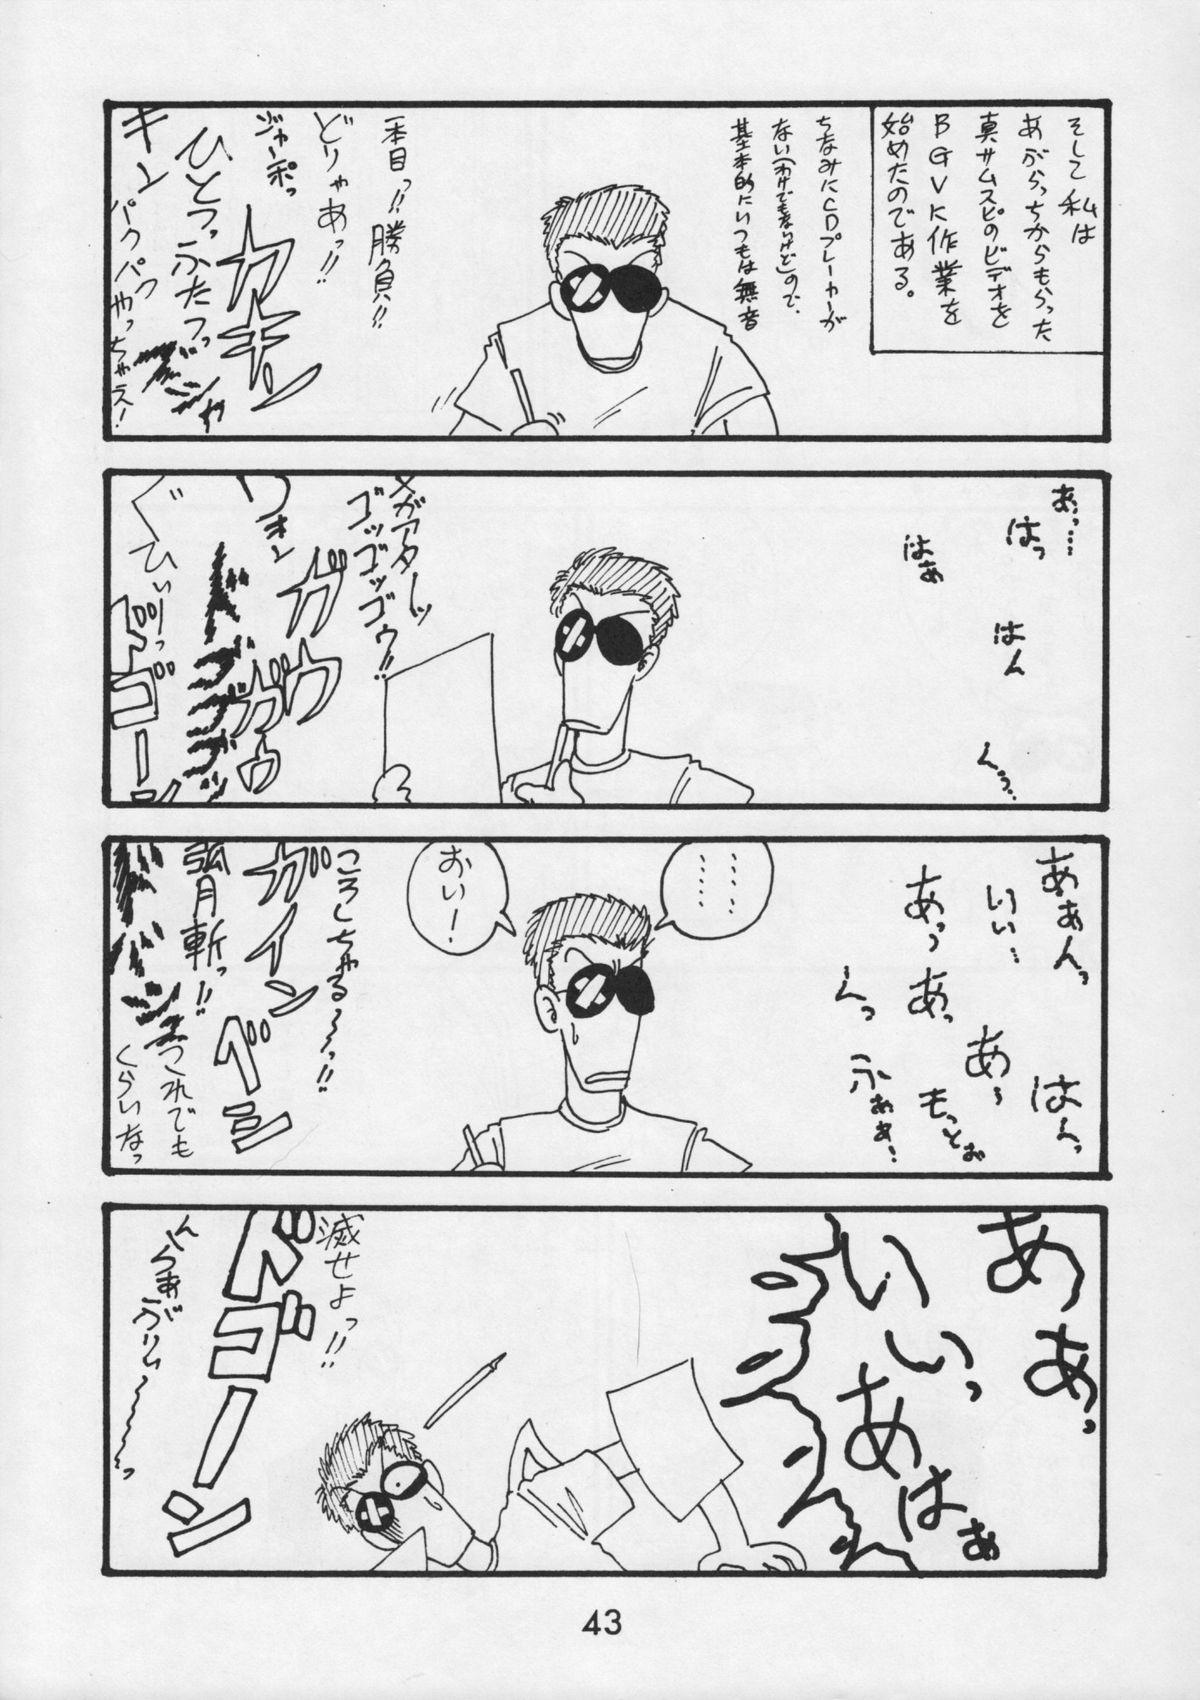 そして私は
あがらっちからもらった
真サムスピのビデオを
BGVに作業を
始めたのである。
ちなみにCDプレーヤーが
ない(わけでもないけど)ので、
基本的にいつもは無音
一本目っ!!勝負!!
どりゃあっ!!
ジャーポっ
カキン
ひとつっふたつっ
ズシャ
キン
パクパク
やっちゃえ!
あっ…
はっ
はぁ
はん
んっ…
メガアターッ
ゴッゴッゴゥ!!
ガウ
ガガウ
ウォン
ドゴゴゴッ
ぐひぃっ
ドゴーン
ああんっ
いい…
はーっ
あっあっあ〜
もっとぉ
んっ
ふぁぁ!
………
おい!
ころしちゃる〜っ!!
ガイン
ベシ
弧月斬っ!!
これでも
くらいなっ
ドドン
ああっ
いいっ
あはぁ
滅せよっ!!
ドゴーン
43